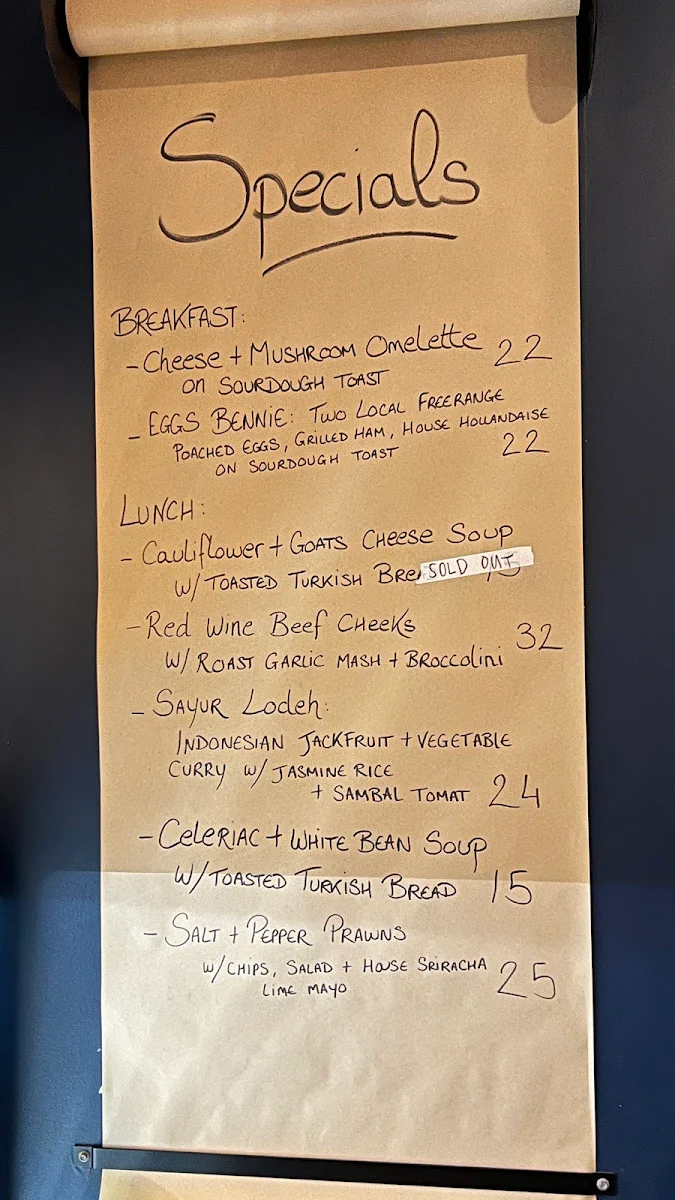 Specials
BREAKFAST:
- Cheese + MUSHROOM Omelette 22
ON SOURDOUGH TOAST
- EGGS BENNIE: TWO LOCAL FREERANGE
POACHED EGGS, GRILLED HAM, HOUSE HOLLANDAISE
ON SOURDOUGH TOAST 22
LUNCH:
- Cauliflower + GOATS CHEESE SOUP
W/ TOASTED TURKISH SOLD OUT
- Red Wine Beef CHeeKs 32
W/ ROAST GARLIC MASH + BROCCOLINI
- SAYUR Lodeh:
INDONESIAN JACKFRUIT + VEGETABLE
CURRY W/ JASMINE RICE
+ SAMBAL TOMAT 24
- CeleRIAC + WHITE BEAN SOUP
W/ TOASTED TURKISH BREAD 15
- SALT + PEPPER PRAWNS
W/ CHIPS, SALAD + HOUSE SRIRACHA 25
LIME MAYO